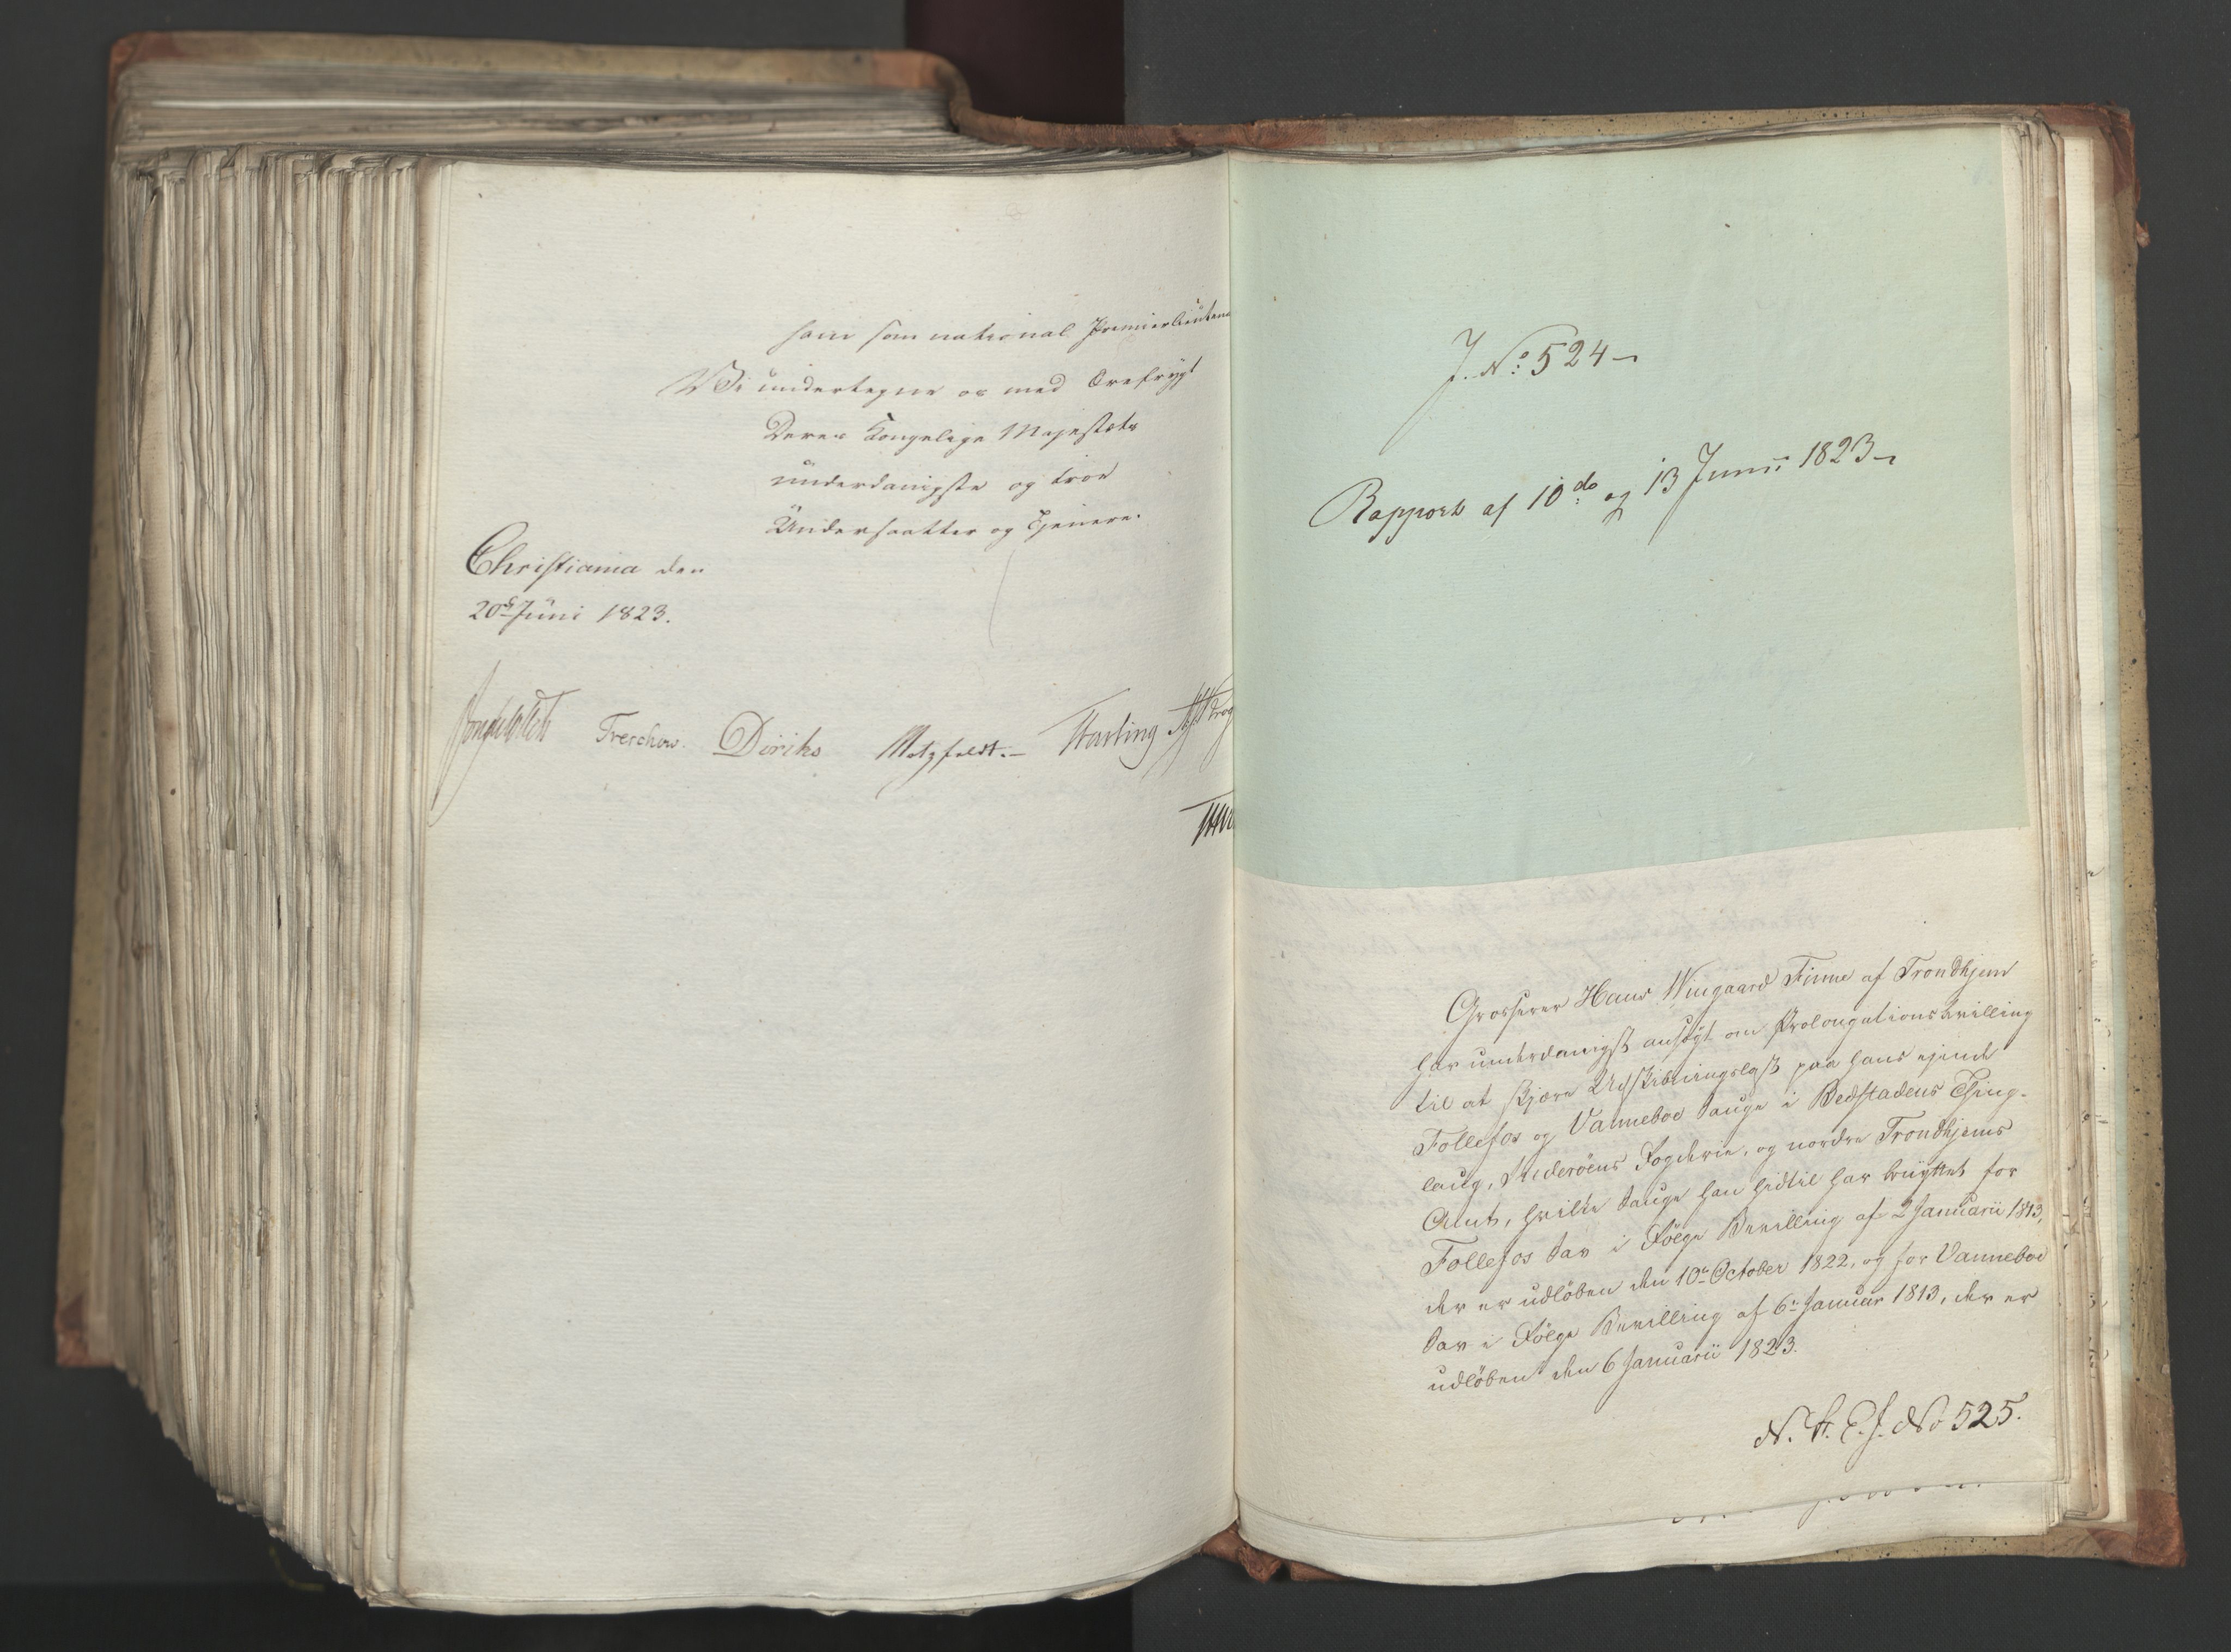 ham som national Premierlieutena
Vi undertegne os med Ærefrygt
Deres Kongelige Majestæts
underdanigste og troe
Undersaatter og Tjenere.
Christiania den
20de Juni 1823.
Treschow. Diriks Motzfeldt.- Fasting
J. No: 524
Rapport af 10de og 13 Junii 1823
Grosserer Hans Wingaard Finne af Trondhjem
har underdanigst ansøgt om Prolongationsbevilling
til at skjære Udskibningslast paa hans ejende
Follefos og Vanneboe Sauge i Bedstadens Thing-
laug, Inderöens Fogderie, og nordre Trondhjems
Amt, hvilke Sauge han hidtil har benyttet for
Follefos Sav i Fölge Bevilling af 2 Januarii 1813,
der er udlöben den 10de October 1822, og for Vanneboe
Sav i Fölge Bevilling af 6te Januar 1813, der er
udlöben den 6 Januarii 1823.
No 525.